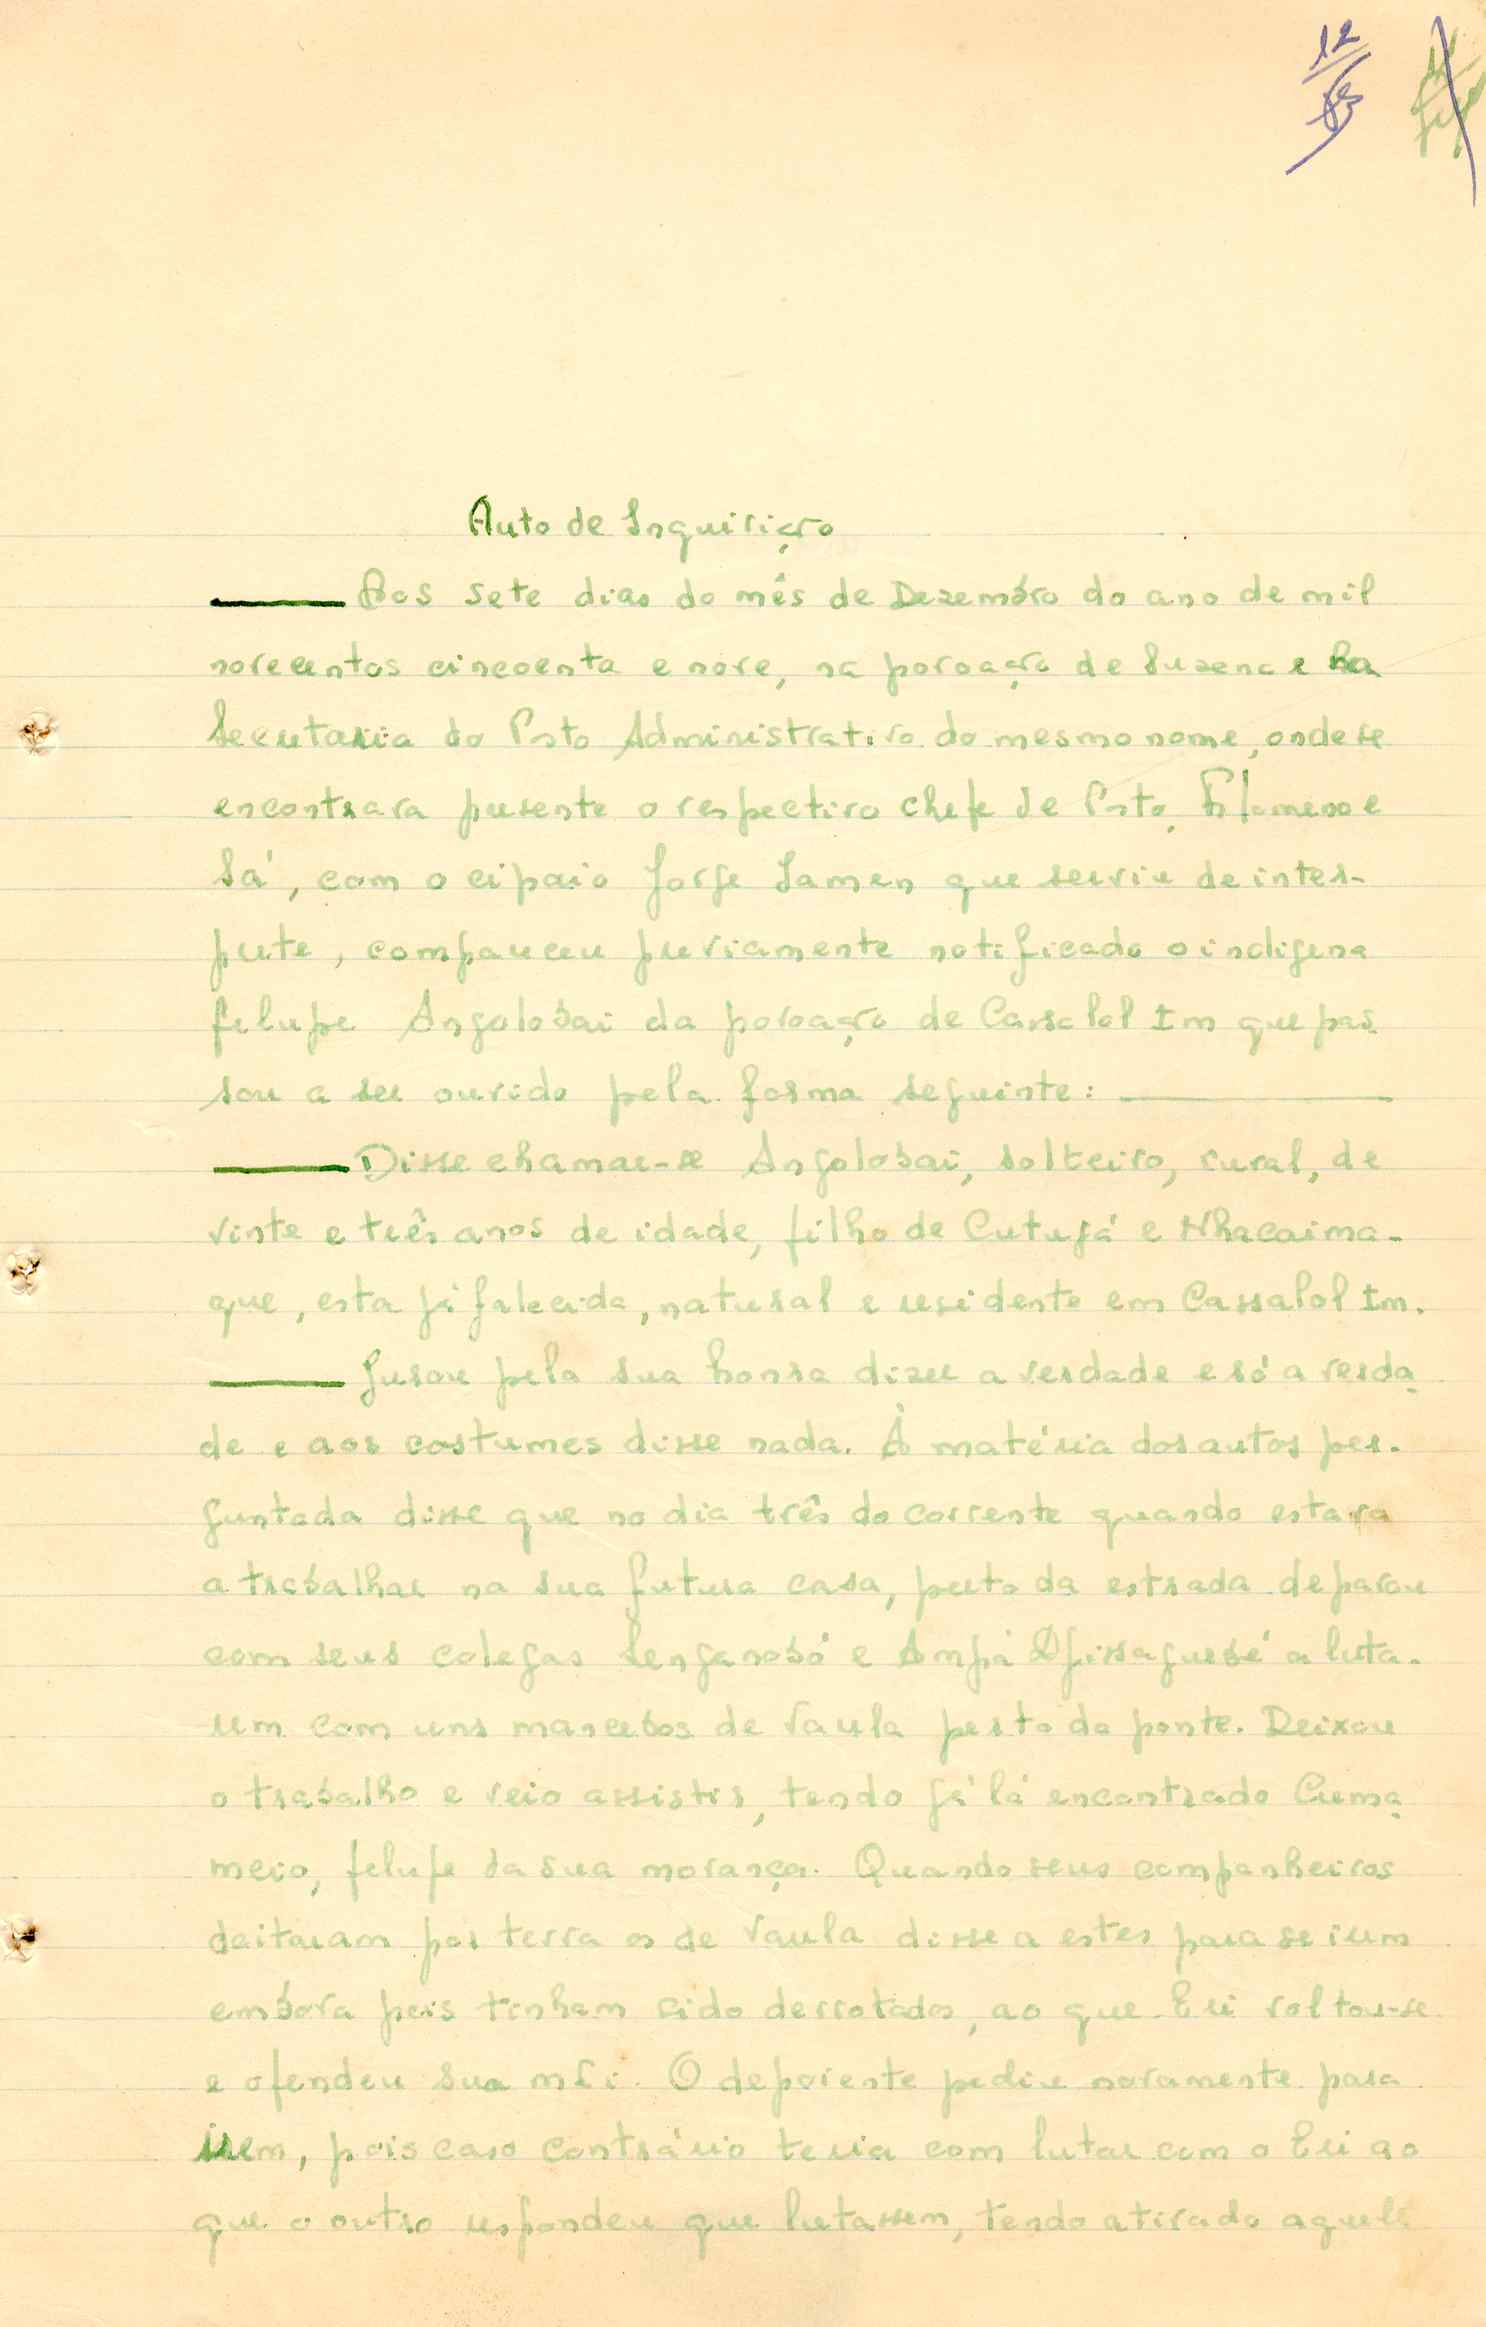 12
Auto de Inquirição
Aos sete dias do mês de Dezembro do ano de mil
novecentos cincoenta e nove, na povoação de Suzana e na
Secretaria do Posto Administrativo do mesmo nome, onde se
encontrava presente o respectivo chefe de Posto, Filomeno e
Sá, com o cipaio Jorge Lamen que serviu de inter-
prete, compareceu previamente notificado o indigena
felupe Angolobai da povoação de Cassalol Im que pas
sou a ser ouvido pela forma seguinte:
Disse chamar-se Angolobai, solteiro, rural, de
vinte e três anos de idade, filho de Cutujá e Nhacaima-
que, esta já falecida, natural e residente em Cassalol Im.
Jurou pela sua honra dizer a verdade e só a verda
de e aos costumes disse nada. À matéria dos autos per-
guntada disse que no dia três do corrente quando estava
a trabalhar na sua futura casa, perto da estrada deparou
com seus colegas Senganobó e Ampá Djissaguebé a luta-
rem com uns mancebos de Varela perto da ponte. Deixou
o trabalho e veio assistir, tendo já lá encontrado Cuma
meio, felupe da sua morança. Quando seus companheiros
deitaram por terra os de Varela disse a estes para se irem
embora pois tinham sido derrotados, ao que Eri voltou-se
e ofendeu sua mãi. O depoiente pediu novamente para
irem, pois caso contrário teria com lutar com o Eri ao
que o outro respondeu que lutassem, tendo atirado aquele